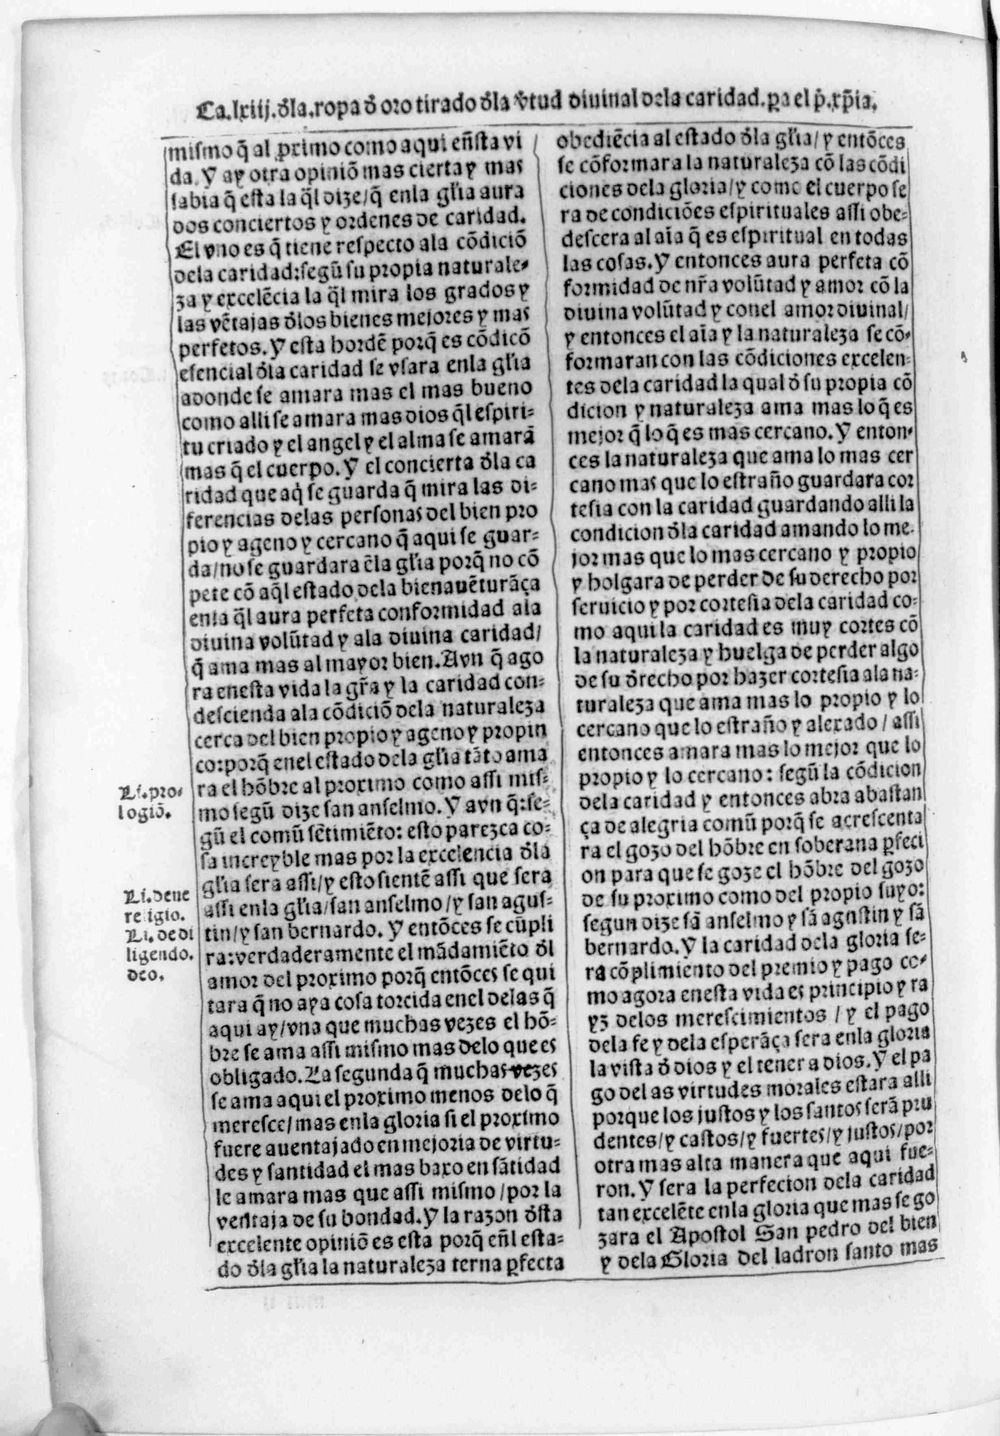 Ca.lxiij.d̓la.ropa d̓ oro tirado d̓la v̓tud diuinal dela caridad.ꝑa el p̓.xp̄ia.
mismo q̄ al ꝓximo como aqui eñsta vi
da. Y ay otra opiniō mas cierta y mas
sabia q̄ esta la q̄l dize/q̄ enla gl̓ia aura
dos conciertos y ordenes de caridad.
El vno es q̄ tiene respecto ala cōdiciō
dela caridad:segū su propia naturale-
za y excelēcia la q̄l mira los grados y
las vētajas d̓los bienes mejores y mas
perfetos. Y esta hordē porq̄ es cōdicō
esencial d̓la caridad se vsara enla gl̓ia
adonde se amara mas el mas bueno
como alli se amara mas dios q̄l espiri-
tu criado y el angel y el alma se amarā
mas q̄ el cuerpo. Y el concierta d̓la ca
ridad que aq̄ se guarda q̄ mira las di-
ferencias delas personas del bien pro
pio y ageno y cercano q̄ aqui se guar-
da/no se guardara ēla gl̓ia porq̄ no cō
pete cō aq̄l estado dela bienauēturāça
enla q̄l aura perfeta conformidad ala
diuina volūtad y ala diuina caridad/
q̄ ama mas al mayor bien. Avn q̄ ago
ra enesta vida la gr̄a y la caridad con-
descienda ala cōdiciō dela naturaleza
cerca del bien propio y ageno y propin
co:porq̄ enel estado dela gl̓ia tāto ama
ra el hōbre al proximo como assi mis-
mo segū dize san anselmo. Y avn q̄:se-
gū el comū sētimiēto: esto parezca co-
sa increyble mas por la excelencia d̓la
gl̓ia sera assi/y esto sientē assi que sera
assi enla gl̓ia/san anselmo/y san agus-
tin/y san bernardo. Y entōces se cūpli
ra:verdaderamente el mādamiēto d̓l
amor del proximo porq̄ entōces se qui
tara q̄ no aya cosa torcida enel delas q̄
aqui ay/vna que muchas vezes el hō-
bre se ama assi mismo mas delo que es
obligado. La segunda q̄ muchas vezes
se ama aqui el proximo menos delo q̄
meresce/mas enla gloria si el proximo
fuere auentajado en mejoria de virtu-
des y santidad el mas baxo en sātidad
le amara mas que assi mismo/por la
ventaja de su bondad. Y la razon d̓sta
excelente opiniō es esta porq̄ eñl esta-
do d̓la gl̓ia la naturaleza terna ꝑfecta
Li.pro-
logiō.
Li.de ve
religio.
Li.de di
ligendo.
deo.
obediēcia al estado d̓la gl̓ia/y entōces
se cōformara la naturaleza cō las cōdi
ciones dela gloria/y como el cuerpo se
ra de condiciōes espirituales assi obe-
descera al aīa q̄ es espiritual en todas
las cosas. Y entonces aura perfeta cō
formidad de nr̄a volūtad y amor cō la
diuina volūtad y conel amor diuinal/
y entonces el aīa y la naturaleza se cō-
formaran con las cōdiciones excelen-
tes dela caridad la qual d̓ su propia cō
dicion y naturaleza ama mas lo q̄ es
mejor q̄ lo q̄ es mas cercano. Y enton-
ces la naturaleza que ama lo mas cer
cano mas que lo estraño guardara cor
tesia con la caridad guardando alli la
condicion d̓la caridad amando lo me-
jor mas que lo mas cercano y propio
y holgara de perder de su derecho por
seruicio y por cortesia dela caridad co-
mo aqui la caridad es muy cortes cō
la naturaleza y huelga de perder algo
de su d̓recho por hazer cortesia ala na-
turaleza que ama mas lo propio y lo
cercano que lo estraño y alexado/assi
entonces amara mas lo mejor que lo
propio y lo cercano: segū la cōdicion
dela caridad y entonces abra abastan
ça de alegria comū porq̄ se acrescenta
ra el gozo del hōbre en soberana ꝑfeci
on para que se goze el hōbre del gozo
de su proximo como del propio suyo:
segun dize sā anselmo y sā agustin y sā
bernardo. Y la caridad dela gloria se-
ra cōplimiento del premio y pago co-
mo agora enesta vida es principio y ra
yz delos merescimientos/y el pago
dela fe y dela esperāça sera enla gloria
la vista d̓ dios y el tener a dios. Y el pa
go del as virtudes morales estara alli
porque los justos y los santos serā pru
dentes/y castos/y fuertes/y justos/por
otra mas alta manera que aqui fue-
ron. Y sera la perfecion dela caridad
tan excelēte enla gloria que mas se go
zara el Apostol San pedro del bien
y dela Gloria del ladron santo mas